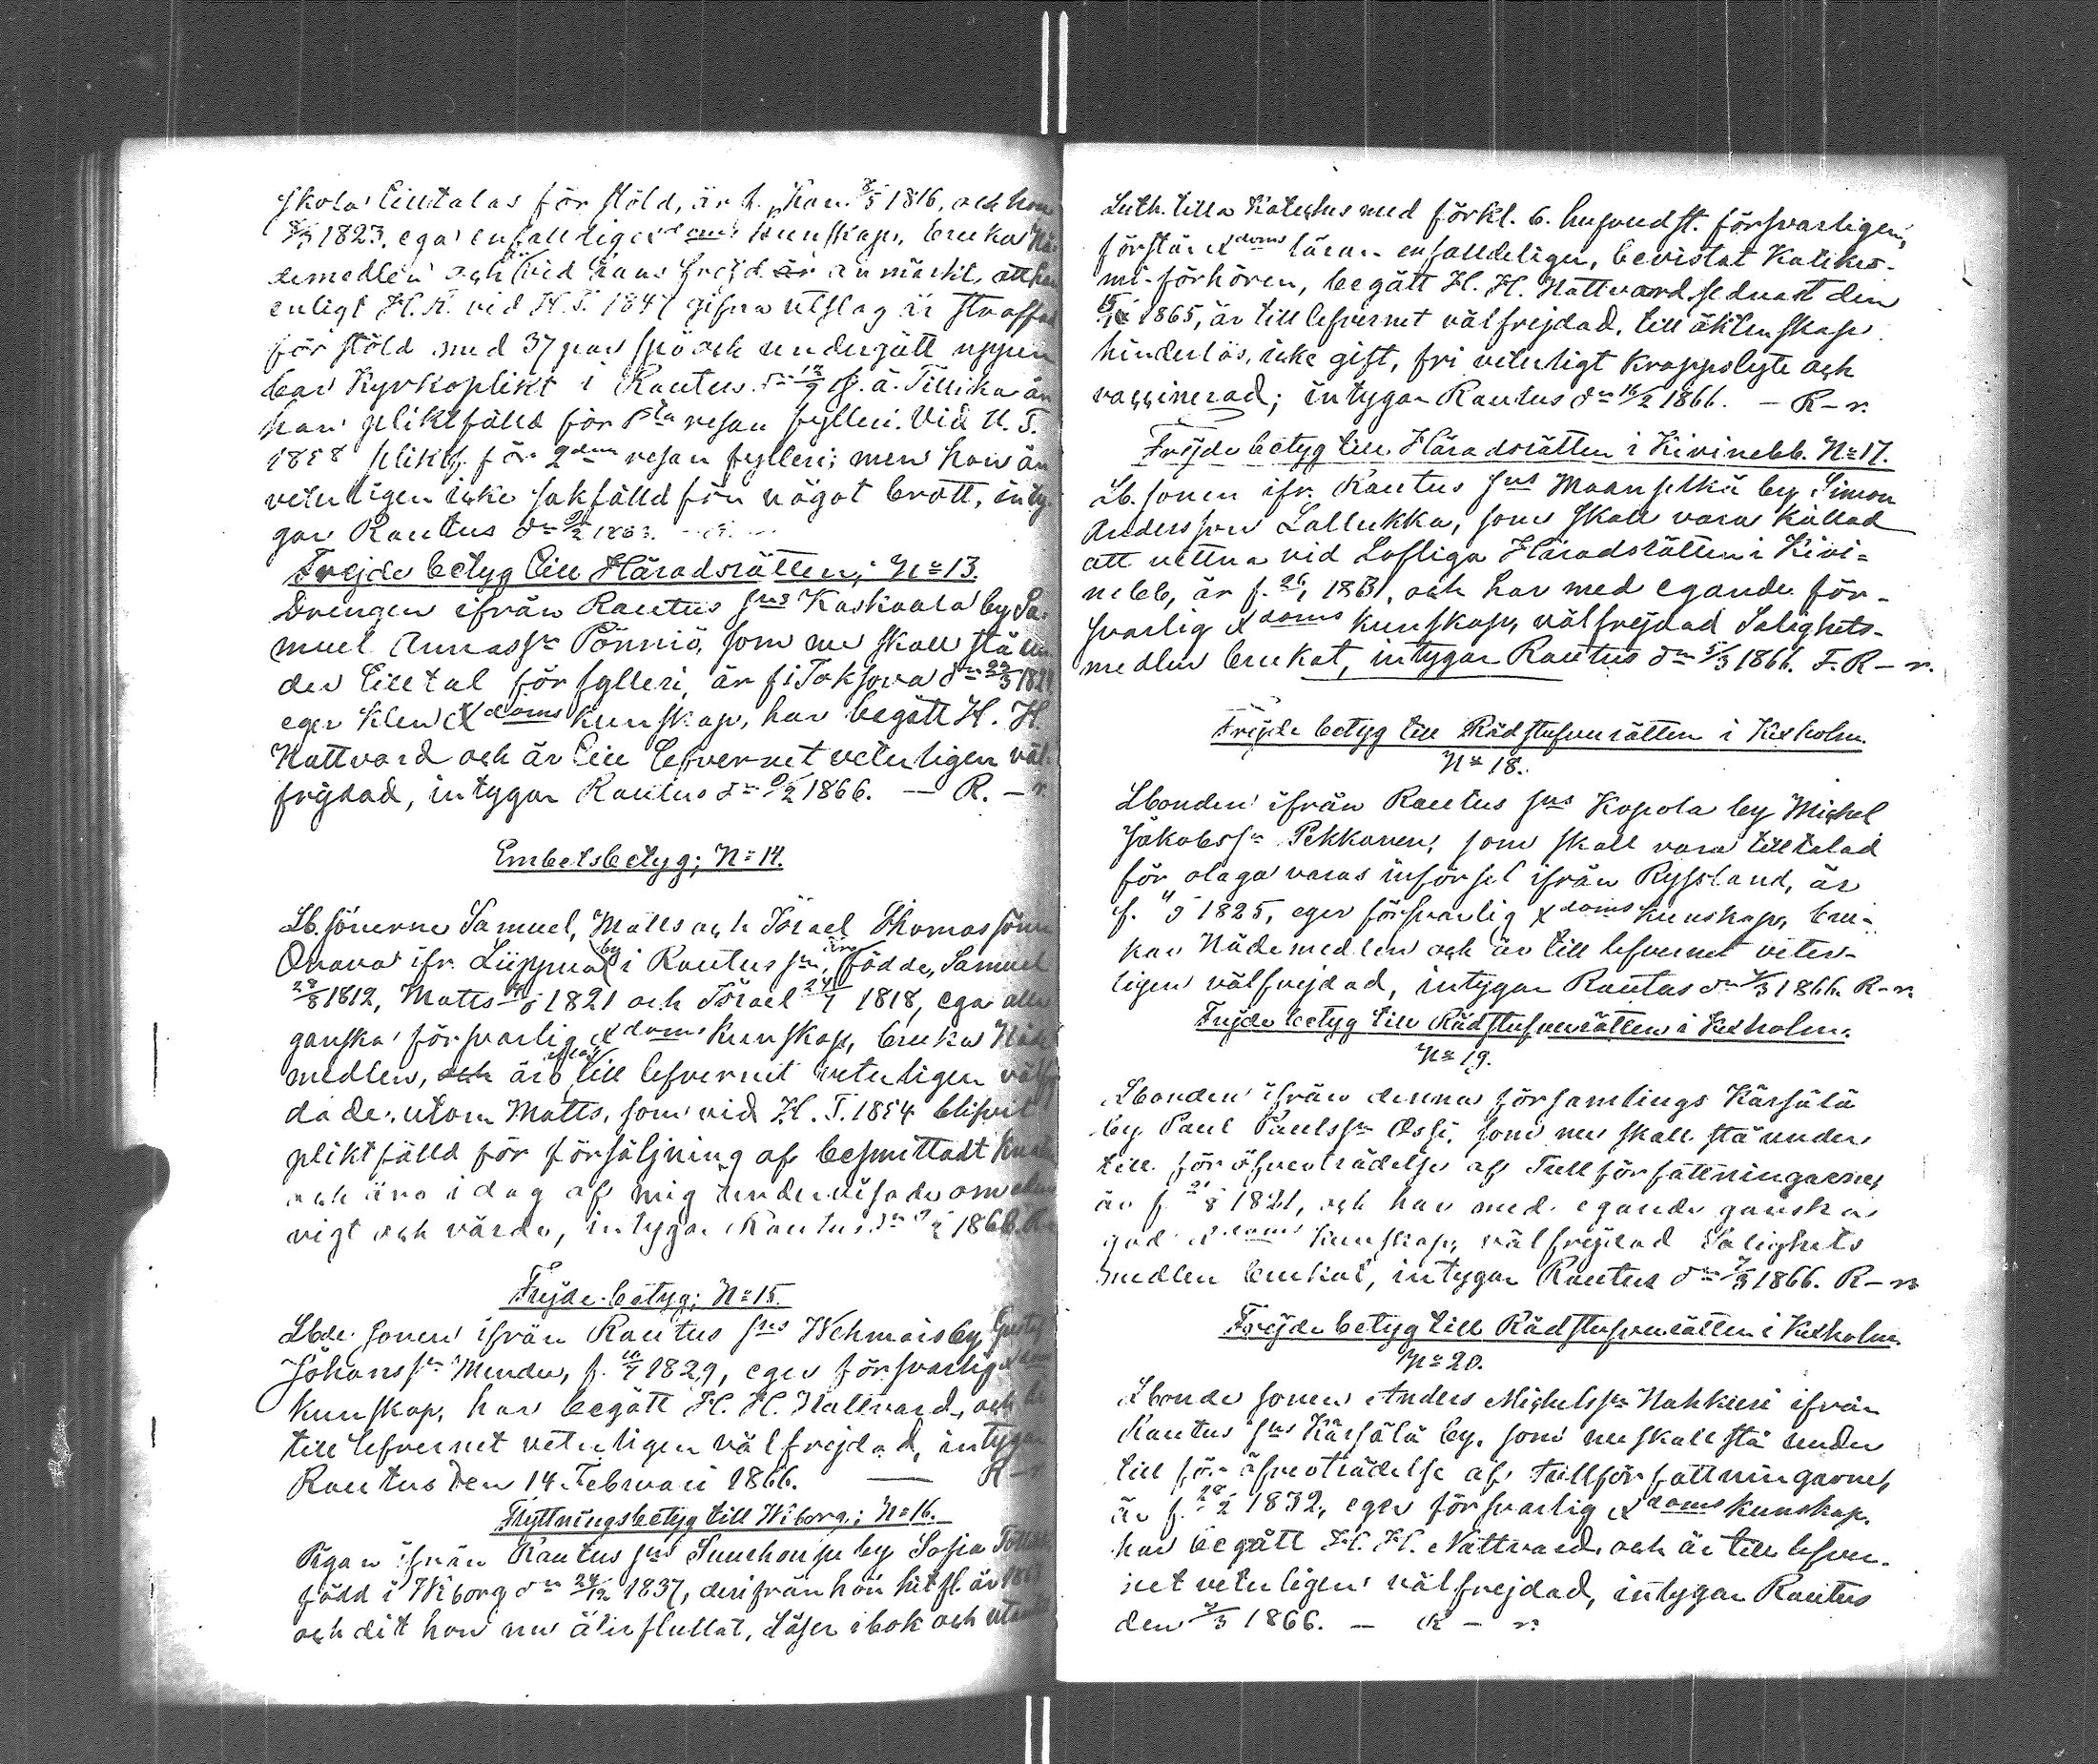 skola tilltalas för stöld, är f. han 8/5 1816, och hon
1823, ega enfalldig xdoms kunskap, bruka Nå-
demedlen och vid hans frejd är anmärkt, att han
enligt H. R. vid H. T. 1847 gifna utslag är straffad
för stöld med 37 par spö och undergått uppen-
bar Kyrkoplikt i Rautus dn 12/9 s. å. Tillika är
han pliktfälld för 1sta resan fylleri. Vid U. T.
1858 pliktf. för 2dra resan fylleri; men hon är
veterligen icke sakfälld för något brott, inty-
gar Rautus dn 9/2 1866.
Frejde betyg till Häradsrätten; No 13.
Drengen ifrån Rautus sns Kaskaala by Sa-
muel Annassn Pönniö, som nu skall stå un-
der tilltal för fylleri, är f. i Toksova dn 23/3
eger klen xdoms kunskap, har begått H. H.
Nattvard och är till lefvernet veterligen väl-
frejdad, intygar Rautus dn 9/2 1866. — R. – r.
Embetsbetyg; No 14.
Lb. sönerne Samuel, Matts och Israel Thomassöner
Orava ifr. Liippua by i Rautus sn, äro födde, Samuel
28/8 1812, Matts 1821 och Israel 24/7 1818, ega alla
ganska försvarlig xdoms kunskap, bruka Nåde-
medlen, och äro till lefvernet veterligen välfrej-
dade, utom Matts, som vid H. T. 1854 blifvit
pliktfälld för försäljning af besmittadt
och äro i dag af mig undervisade om edens
vigt och värde, intygar Rautus dn 1866. R
Frejde-betyg; No 15.
Lbde sonen ifrån Rautus sns Wehmais by Gustaf
Johanssn Mender, f. 10/7 1829, eger försvarlig xdoms
kunskap, har begått H. H. Nattvard, och är
till lefvernet veterligen välfrejdad, intygar
Rautus den 14 Februari 1866. — R – r
Flyttningsbetyg till Wiborg; No 16.
Pigan ifrån Rautus sns Suurhousu by Sofia
född i Wiborg dn 24/12 1837, derifrån hon hit fl. år
och dit hon nu åter fluttat, läser i bok och utantill
Luth. lilla Kateches med förkl. 6. hufvudst. försvarligen,
förstår xdoms läran enfalldeligen, bevistat Katikes-
mi-förhören, begått H. H. Nattvard sednast den
1865, är till lefvernet välfrejdad, till äktenskap
hinderlös, icke gift, fri veterligt kroppslyte och
vaccinerad; intygar Rautus dn 16/2 1866. — R – r.
Frejde betyg till Häradsrätten i Kivinebb. No 17.
Lb. sonen ifr. Rautus sns Maanselkä by Simon
Andersson Lallukka, som skall vara kallad
att vittna vid Lofliga Häradsrätten i Kivi-
nebb, är f. 1831, och har med egande för-
svarlig xdoms kunskap, välfrejdad Salighets-
medlen brukat, intygar Rautus dn 5/3 1866. F. R – r.
Frejde betyg till Rådstufvurätten i Kexholm.
No 18.
Lbonden ifrån Rautus sns Kopola by Michel
Jakobssn Pekkanen, som skall vara tilltalad
för olaga varas införsel ifrån Ryssland, är
f. 1825, eger försvarlig xdoms kunskap, bru-
kar Nådemedlen och är till lefvernet veter-
ligen välfrejdad, intygar Rautus dn /3 1866. R – r.
Frejde betyg till Rådstufvurätten i Kexholm.
No 19.
Lbonden ifrån denna församlings Kärsälä
by Paul Paulssn Ossi, som nu skall stå under
till. för öfverträdelse af Tullförfattningarne,
är f. 1821, och har med egande ganska
god xdoms kunskap, välfrejdad Salighets
medlen brukat, intygar Rautus dn 7/3 1866. R – r
Frejde betyg till Rådstufvurätten i Kexholm
No 20.
Lbonde sonen Anders Michelssn Nahkuri ifrån
Rautus sns Kärsälä by, som nu skall stå under
till för öfverträdelse af tullförfattningarne,
är f. 28/2 1832, eger försvarlig xdoms kunskap,
har begått H. H. Nattvard, och är till lefver-
net veterligen välfrejdad, intygar Rautus
den 7/3 1866. — R – r.